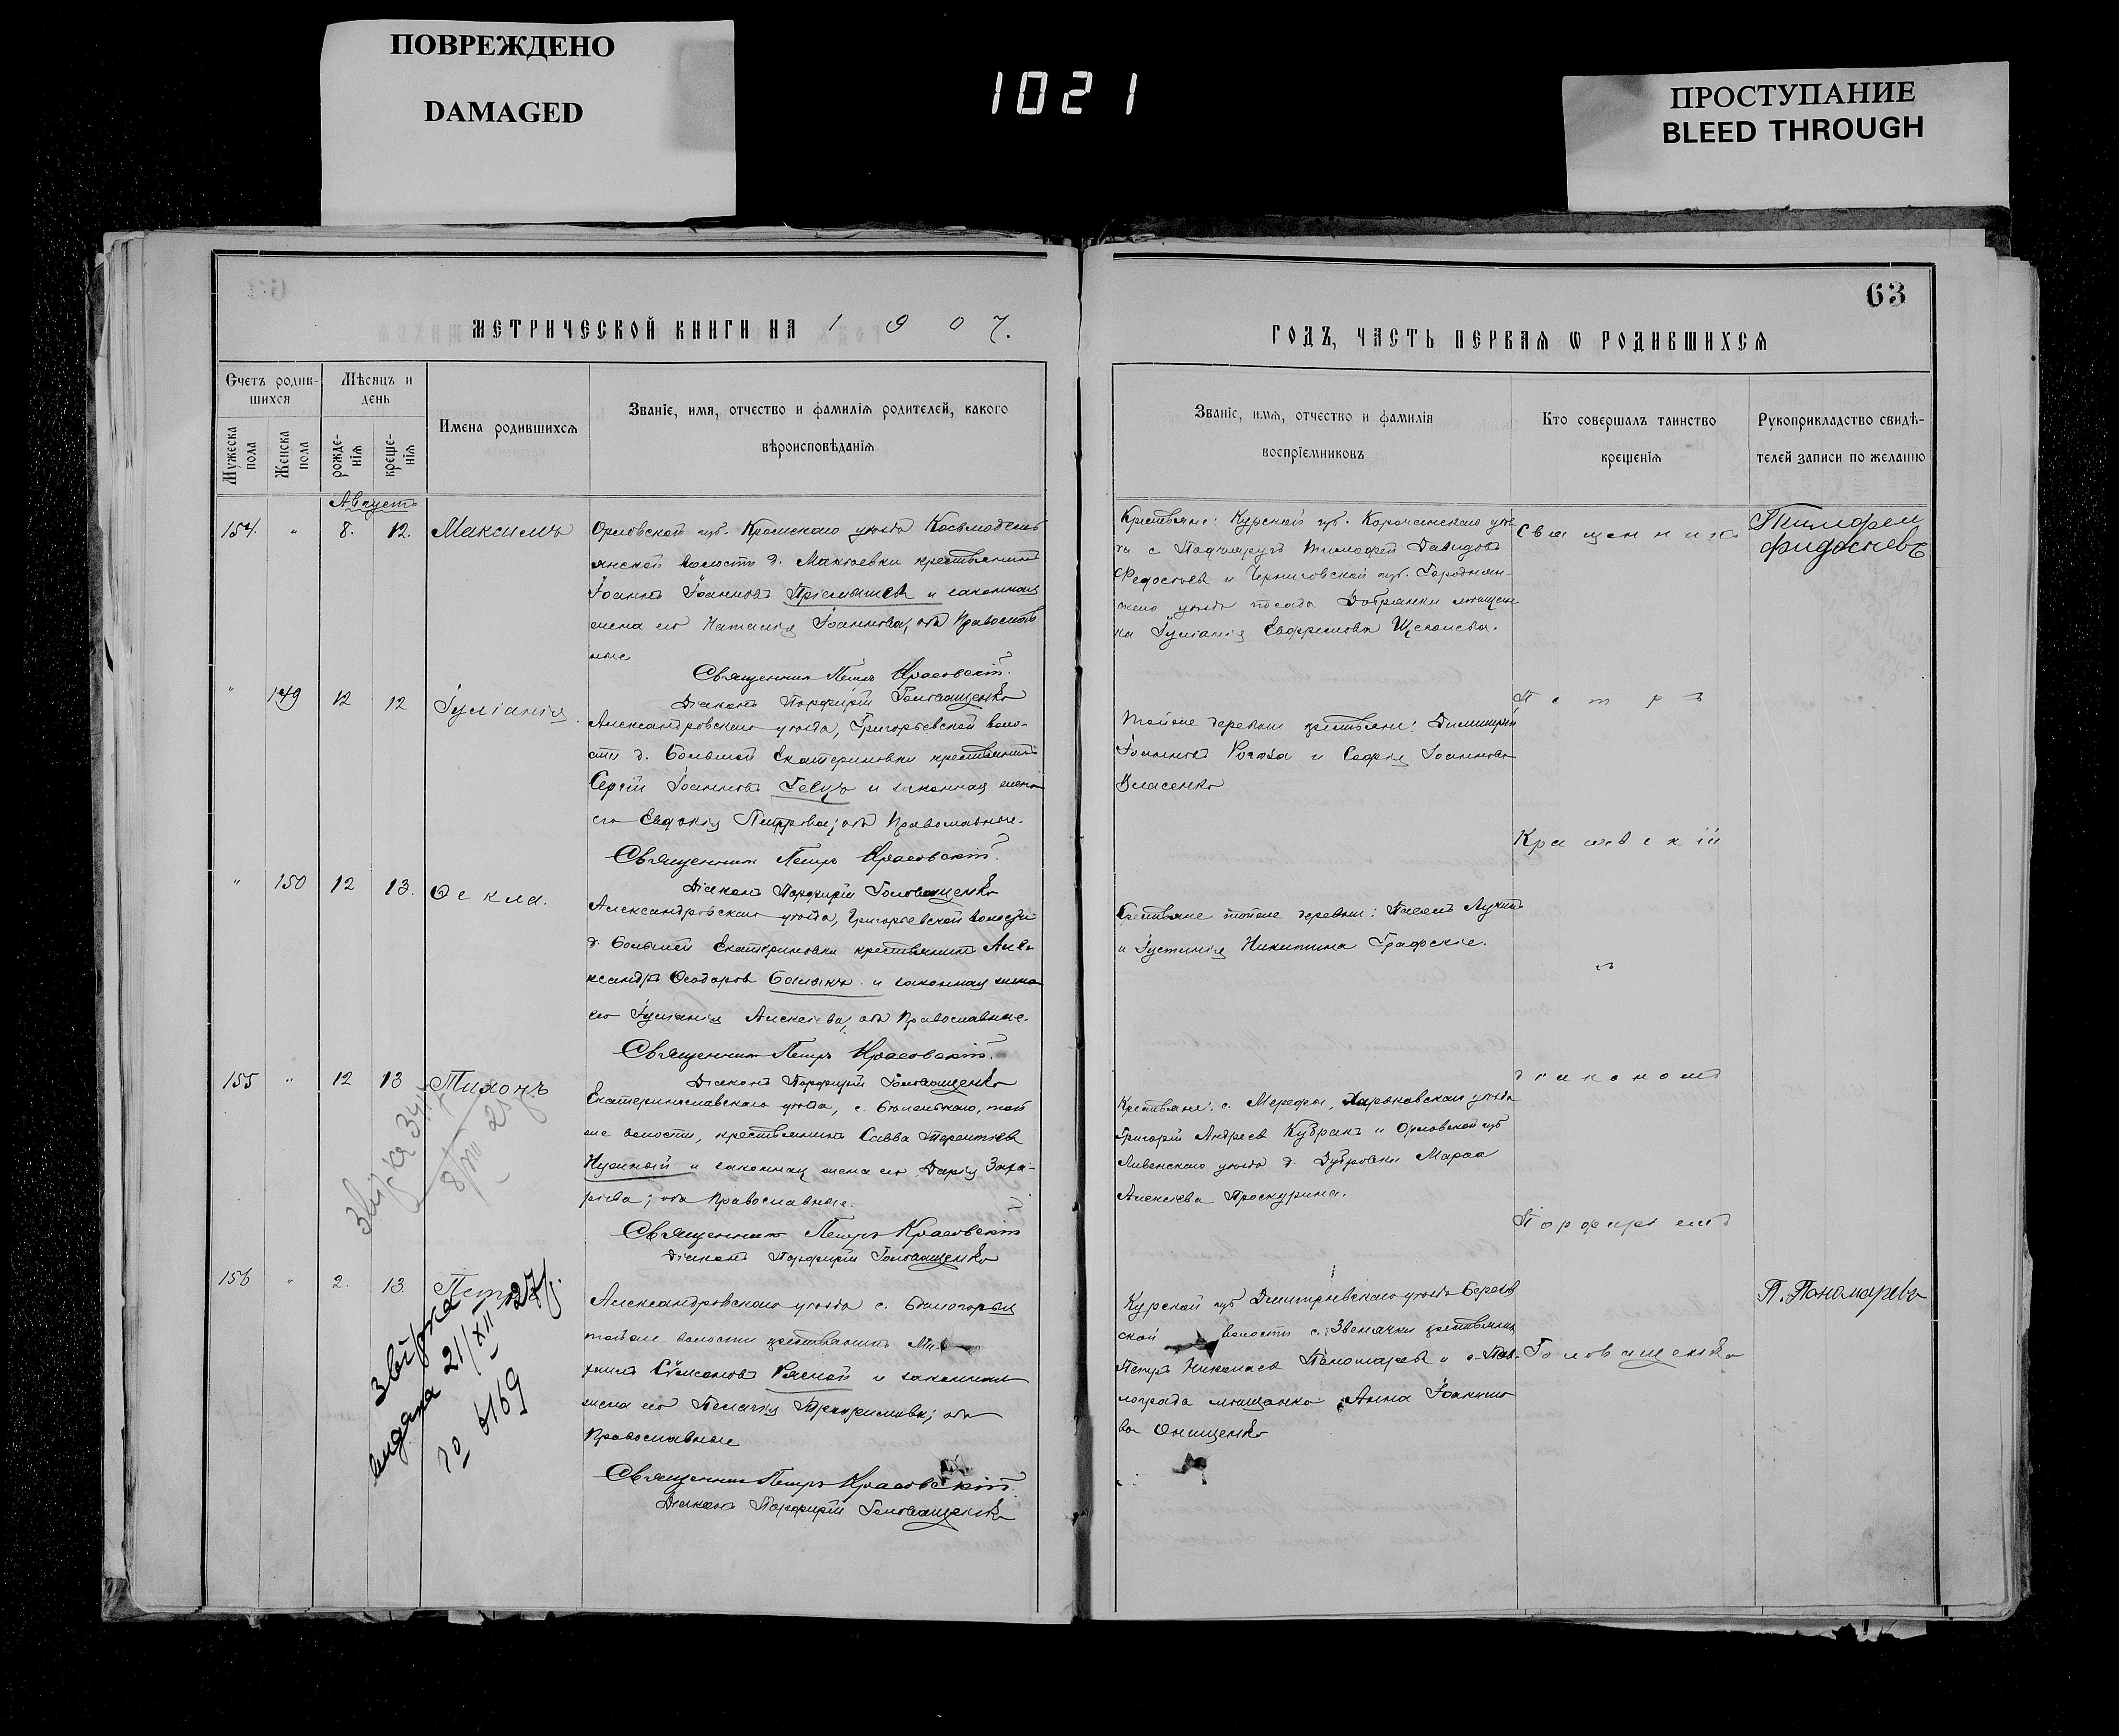 ПОВРЕЖДЕНО
DAMAGED
1021
ПРОСТУПАНИЕ
BLEED THROUGH
63
МЕТРИЧЕСКОЙ КНИГИ НА 1907.
ГОДЪ, ЧАСТЬ ПЕРВАЯ Ѡ РОДИВШИХСЯ
Счетъ родив-
шихся
Мужеска
пола
Женска
пола
Мѣсяцъ и
день
рожде-
нія
креще-
нія
Имена родившихся
Званіе, имя, отчество и фамилія родителей, какого
вѣроисповѣданія
Званіе, имя, отчество и фамилія
воспріемниковъ
Кто совершалъ таинство
крещенія
Рукоприкладство свидѣ-
телей записи по желанію
Августъ
154. " 8. 12. Максимъ
Орловской губ. Кромскаго уѣзда Косьмодемь
янской волости д. Макѣевки крестьянинъ
Іоаннъ Іоанновъ и законная
жена его Наталія Іоаннова, оба Православ
ные
Священникъ Петръ Красовскій.
Діаконъ Порфирій Головащенко
Крестьяне: Курской губ. Корочанскаго уѣз-
да с. Тимофей Давидовъ
Федосѣевъ и Черниговской губ. Городнян-
скаго уѣзда посада Добрянки мѣщан
ка Іуліанія Евфремова
Священникъ
Тимофей
Фидосѣевъ
" 149 12 12 Іуліанія
Александровскаго уѣзда, Григорьевской воло-
сти д. Большой Екатериновки крестьянинъ
Сергій Іоанновъ и законная жена
его Евдокія Петрова; оба Православные.
Священникъ Петръ Красовскій.
Діаконъ Порфирій Головащенко
Тойже деревни крестьяне: Димитрій
Іоанновъ и Софія Іоаннова
Власенко
Петръ
Красовскій
" 150 12 13. Ѳекла.
Александровскаго уѣзда, Григорьевской волости
д. Большой Екатериновки крестьянинъ Але-
ксандръ Ѳеодоровъ Балыкъ и законная жена
его Іуліанія Алексѣева; оба Православные.
Священникъ Петръ Красовскій.
Діаконъ Порфирій Головащенко
Крестьяне тойже деревни: Павелъ
и Іустинія Никитина Графскіе.
155 " 12 13 Тихонъ
Екатеринославскаго уѣзда, с. той
же волости, крестьянинъ Савва Терентьевъ
Нужный и законная жена его Дарія Заха-
ріева; оба Православные.
Священникъ Петръ Красовскій
Діаконъ Порфирій Головащенко
Крестьяне: с. Мерефы, Харьковскаго уѣзда
Григорій Андреевъ и Орловской губ
Ливенскаго уѣзда д. Дубровки Марѳа
Алексѣева Проскурина.
діакономъ
Порфиріемъ
156 " 2. 13. Петръ
Александровскаго уѣзда с. Бѣлогорья
тойже волости крестьянинъ Ми-
хаилъ Сѵмеоновъ и законная
жена его Пелагія оба
Православные
Священникъ Петръ Красовскій.
Діаконъ Порфирій Головащенко
Курской губ Дмитріевскаго уѣзда
ской волости с. Звенячки крестьянинъ
Петръ Николаевъ Пономаревъ и г. Пав-
лограда мѣщанка Анна
ва Онищенко
Головащенко
П. Пономаревъ
Звірка
8/VIII
Звірка
видана 21/XII 27 р.
№ 6169